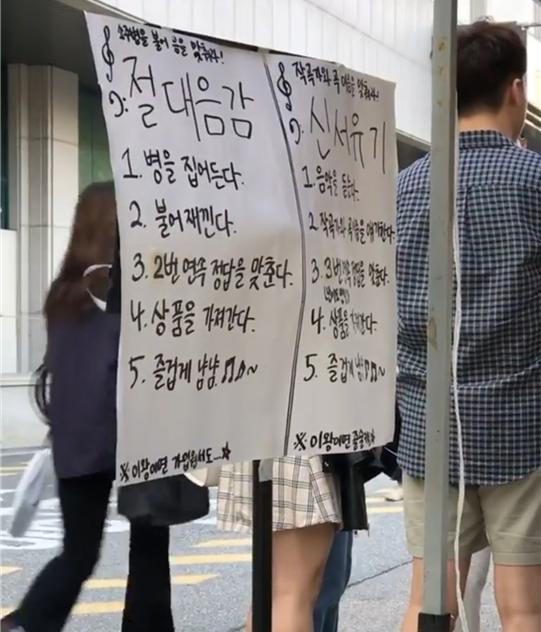 소주병을 불어 음을 맞춰라!
절대음감
1. 병을 집어든다.
2. 불어재낀다.
3. 2번 연속 정답을 맞춘다.
4. 상품을 가져간다.
5. 즐겁게 냠냠♫♪~
※ 이왕이면 가입원서도...☆
작곡가와 곡 이름을 맞춰라!
신서유기
1. 음악을 듣는다.
2. 작곡가와 곡명을 얘기한다.
3. 3번 연속 정답을 맞춘다.
4. 상품을 가져간다.
5. 즐겁게 냠♫♫~
※ 이왕이면